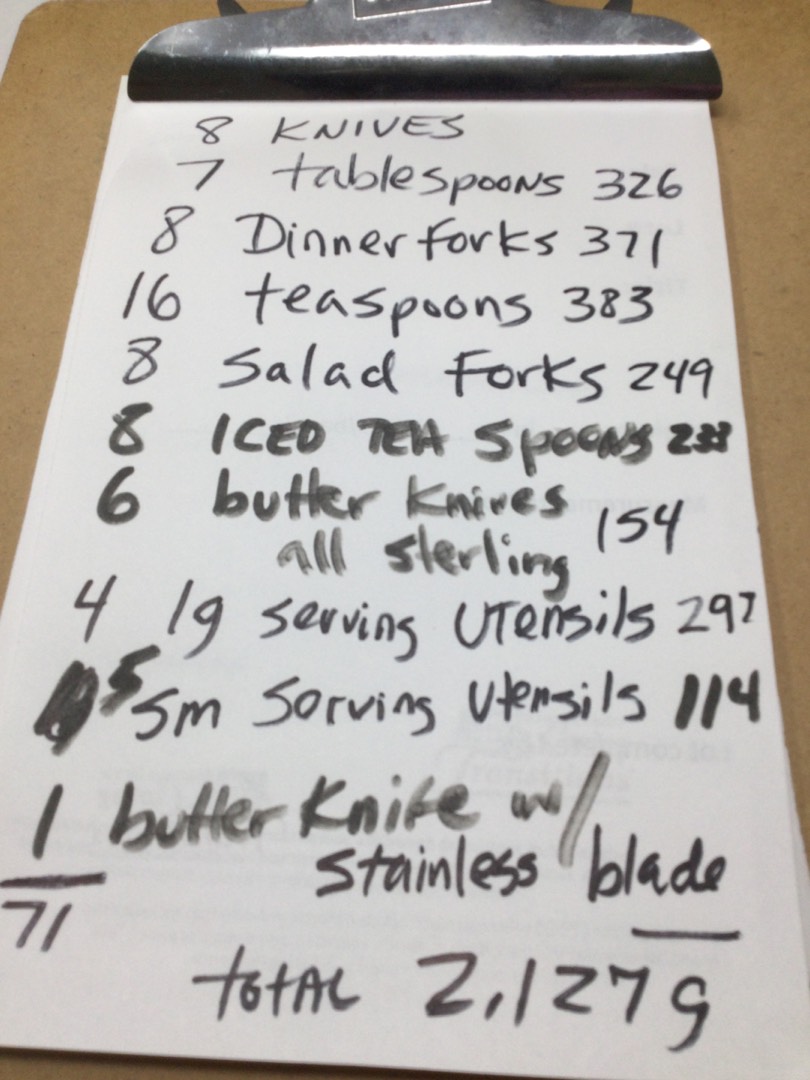 8 KNIVES
7 tablespoons 326
8 Dinner forks 371
16 teaspoons 383
8 Salad Forks 249
8 ICED TEA Spoons 233
6 butter Knives
all sterling 154
4 lg serving UTensils 297
5 sm Serving Utensils 114
1 butter Knife w/
stainless blade
71
TOTAL 2,127g